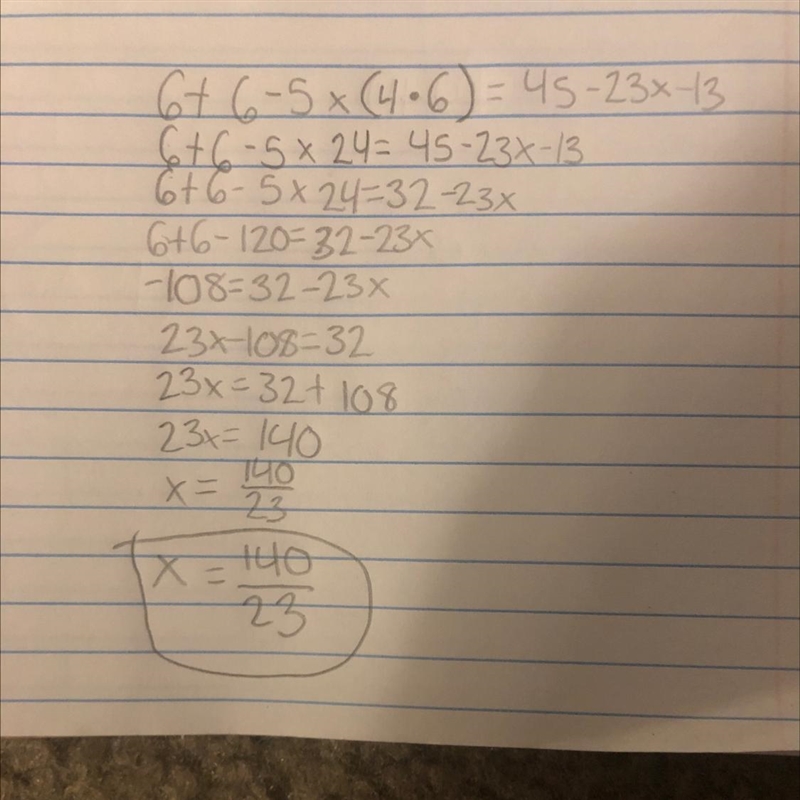 6+ 6-5 x (4•6) = 45-23x-13
6+6-5 x 24= 45-23x-13
6+6- 5 x 24=32-23x
6+6-120=32-23x
-108=32-23x
23x-108=32
23x=32+108
23x= 140
x= 140/23
x = 140/23